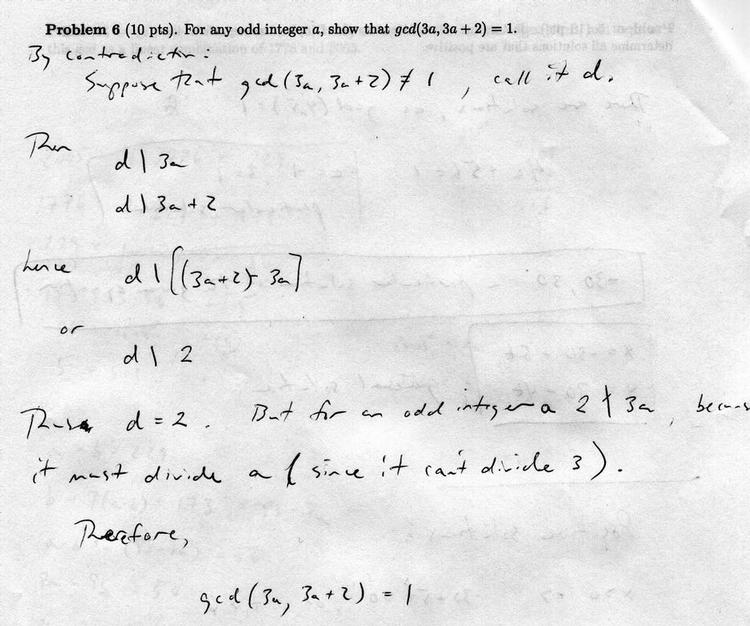 Problem 6 (10 pts). For any odd integer a, show that gcd(3a, 3a + 2) = 1.
By contradiction:
Suppose that gcd(3a, 3a+2) ≠ 1, call it d.
Then
d | 3a
d | 3a+2
hence
d | [(3a+2) - 3a]
or
d | 2
Thus d = 2. But for an odd integer a 2 ∤ 3a, because
it must divide a (since it can't divide 3).
Therefore,
gcd(3a, 3a+2) = 1